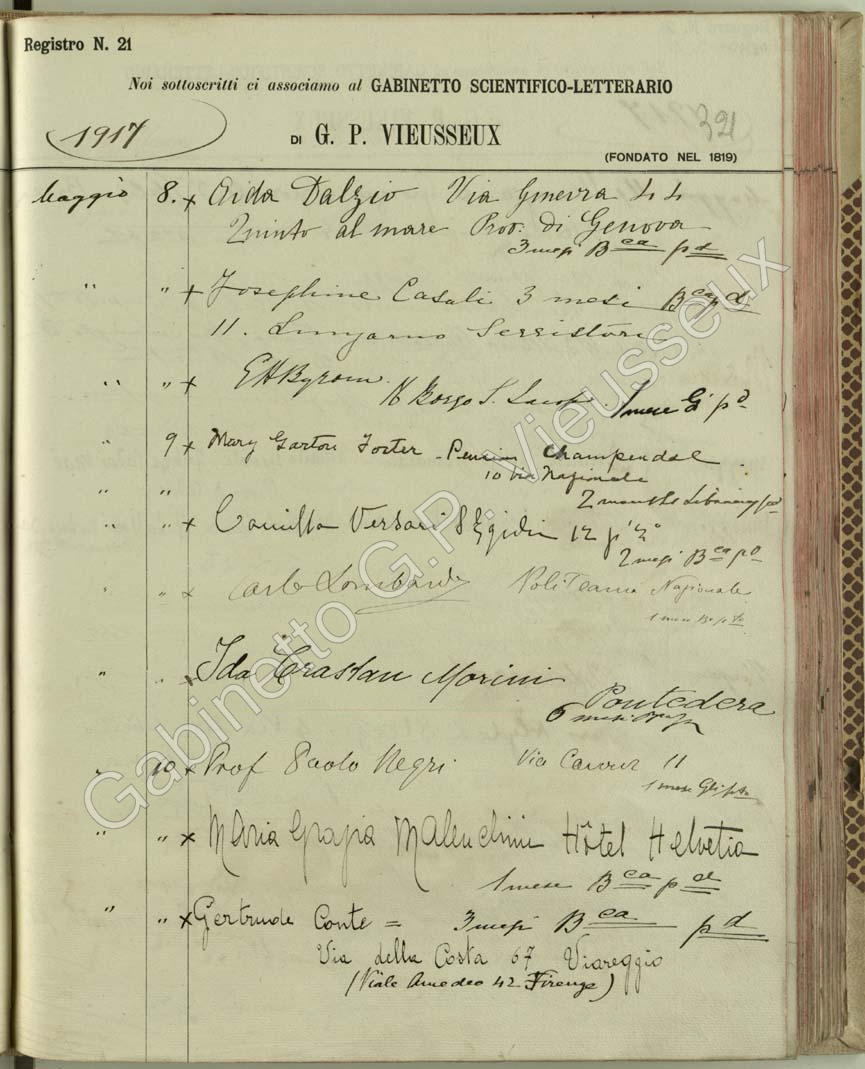 Registro N. 21
Noi sottoscritti ci associamo al GABINETTO SCIENTIFICO-LETTERARIO
1917
321
DI G. P. VIEUSSEUX
(FONDATO NEL 1819)
Maggio 8. x Aida Dalzio Via Ginevra 44
Quinto al mare Prov. di Genova
3 mesi Bca pd
" " x Josephine Casali 3 mesi Bca pd
11. Lungarno Serristori
" " x E H Byrom
16 Borgo S. Jacopo 1 mese G pd
" 9 x Mary Garton Foster - Pension Champendal
10 Via Nazionale
" " 2 months Library pd
" " x Camilla Versari S Egidio 12 p°
2 mesi Bca pd
" " x Carlo Lombardi Politeama Nazionale
1 mese
" " x Ida Crastan Morini
Pontedera
6 mesi
" 10 x Prof Paolo Negri Via Cavour 11
1 mese
" " x Maria Grazia Malenchini Hôtel Helvetia
1 mese Bca pd
" " x Gertrude Conte = 3 mesi Bca pd
Via della Costa 67 Viareggio
(Viale Amedeo 42 Firenze)
Gabinetto G.P. Vieusseux